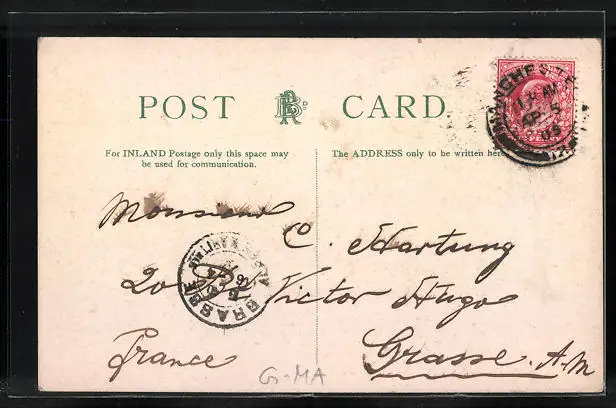 POST CARD
For INLAND Postage only this space may
be used for communication.
The ADDRESS only to be written here
Monsieur C. Hartung
20 Victor Hugo
Grasse. A-M
France
MANCHESTER
GRASSE
ALPES MARITIMES
G-MA